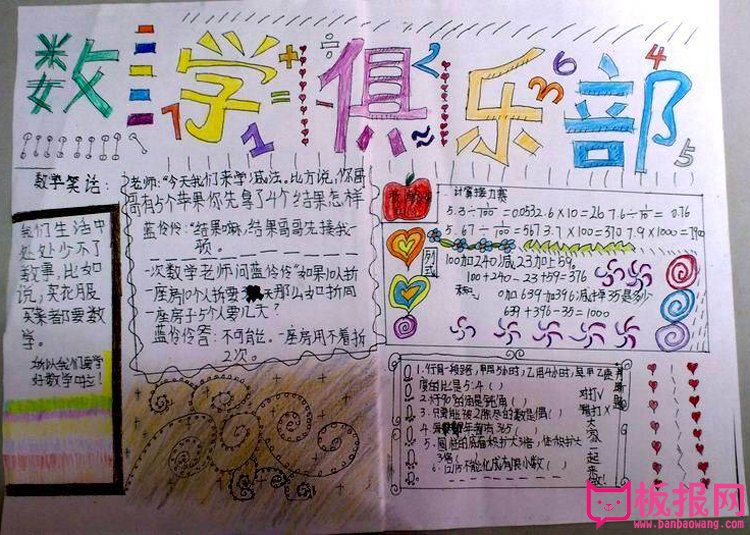 数学俱乐部
7 1 2 3 6 4 5
数学笑话:
我们生活中
处处少不了
数事,比如
说,买花服
买菜都要数
学。
所以我们要学
好数学啦!
老师:“今天我们来学习减法。比方说,你哥
哥有5个苹果你先拿了4个结果怎样
蓝伶伶:“结果嘛,结果哥哥先接我一
顿。
一次数学老师问蓝伶伶“如果10人拆
一座房10个人拆要 天那么如折同
一座房子5个人要几天?
蓝伶伶答:不可能。一座房用不着拆
2次。
计算接力赛
5.3÷1/100=0.0532.6×10=26 7.6÷1/10=0.76
5.67÷1/100=567 3.7×100=370 7.9×1000=7900
列式
100加240减23加上59。
100+240-23+59=376
加639加396减 35是多少
639+396-35=1000
1.行同一段路,甲用5小时,乙用4小时,
度的比是5:4()
2.大于90°的角是钝角()
3.只要能被2除尽的数是偶()
4. 年都有365()
5.圆柱的底面积扩大3倍,体积扩大
3倍()
6. 不能化成有限小数()
对打√
错打×
大
家
一
起
来
做!
板报网
www.banbaowang.com